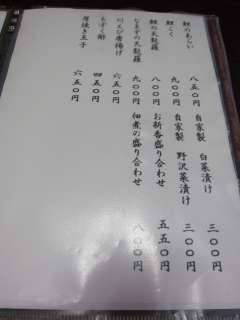 鯉のあらい 八五〇円
鯉こく 九〇〇円
鯉の天麩羅 八〇〇円
なまずの天麩羅 九〇〇円
川えび唐揚げ 六五〇円
もずく酢 四五〇円
厚焼き玉子 六五〇円
自家製 白菜漬け 三〇〇円
自家製 野沢菜漬け 三〇〇円
お新香盛り合わせ 五五〇円
佃煮の盛り合わせ 八〇〇円